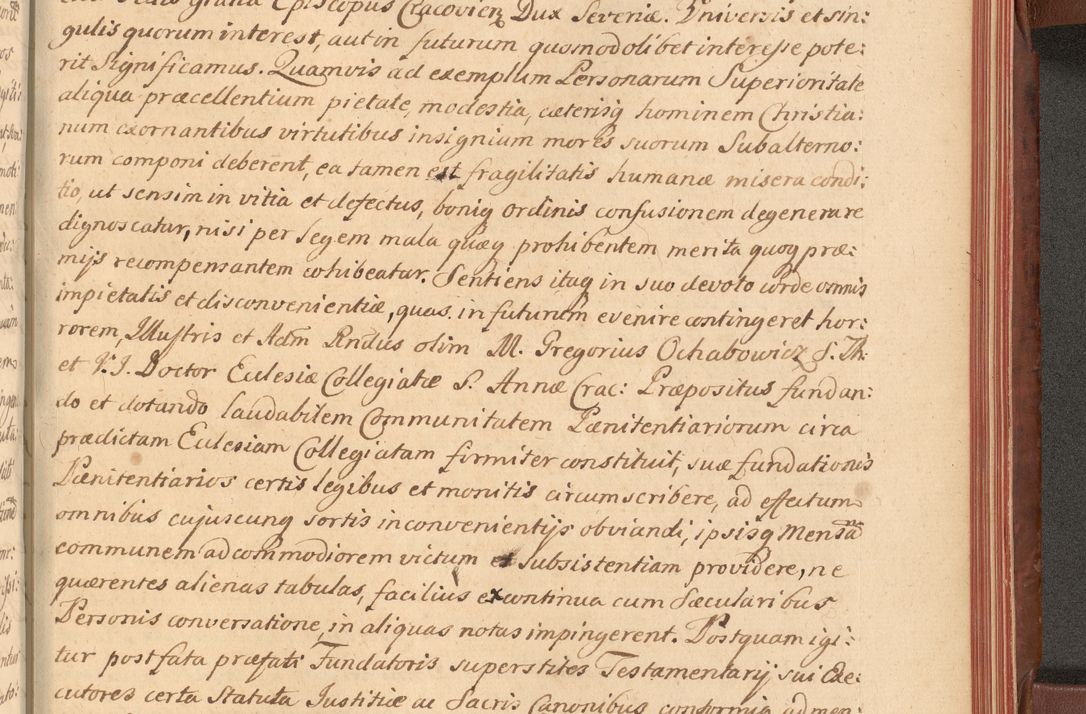 gratia Episcopus Cracovien Dux Severiæ. Universis et sin:
gulis quorum interest, aut in futurum quomodolibet interesse pote:
rit significamus. Quamvis ad exemplum Personarum Superioritate
aliqua præcellentium pietate, modestia, cæterisq hominem Christia:
num exornantibus virtutibus insignium mores suorum Subalterno:
rum componi deberent, ea tamen est fragilitatis humanæ misera condi:
tio, ut sensim in vitia et defectus, boniq ordinis confusionem degenerare
dignoscatur, nisi per legem mala quæq prohibentem merita quoq præ:
mijs recompensantem cohibeatur. Sentiens itaq in suo devoto corde omnis
impietatis et disconvenientiæ, quas in futurum evenire contingeret hor:
rorem, Illustris et Adm Rndus olim M. Gregorius Ochabowicz S. Th:
et V. J. Doctor Eclesiæ Collegiatæ S. Annæ Crac: Præpositus fundan:
do et dotando laudabilem Communitatem Pænitentiariorum circa
prædictam Eclesiam Collegiatam firmiter constituit, suæ fundationis
Pænitentiarios certis legibus et monitis circumscribere, ad effectum
omnibus cujuscunq sortis inconvenientijs obviandi, ipsisq Mensam
communem ad commodiorem victum et subsistentiam providere, ne
quærentes alienas tabulas, facilius ex continua cum Sæcularibus
Personis conversatione, in aliquas notas impingerent. Postquam igi:
tur post fata præfati Fundatoris superstites Testamentarij sui Exe:
cutores certa Statuta Justitiæ ac Sacris Canonibus conformia ad men: